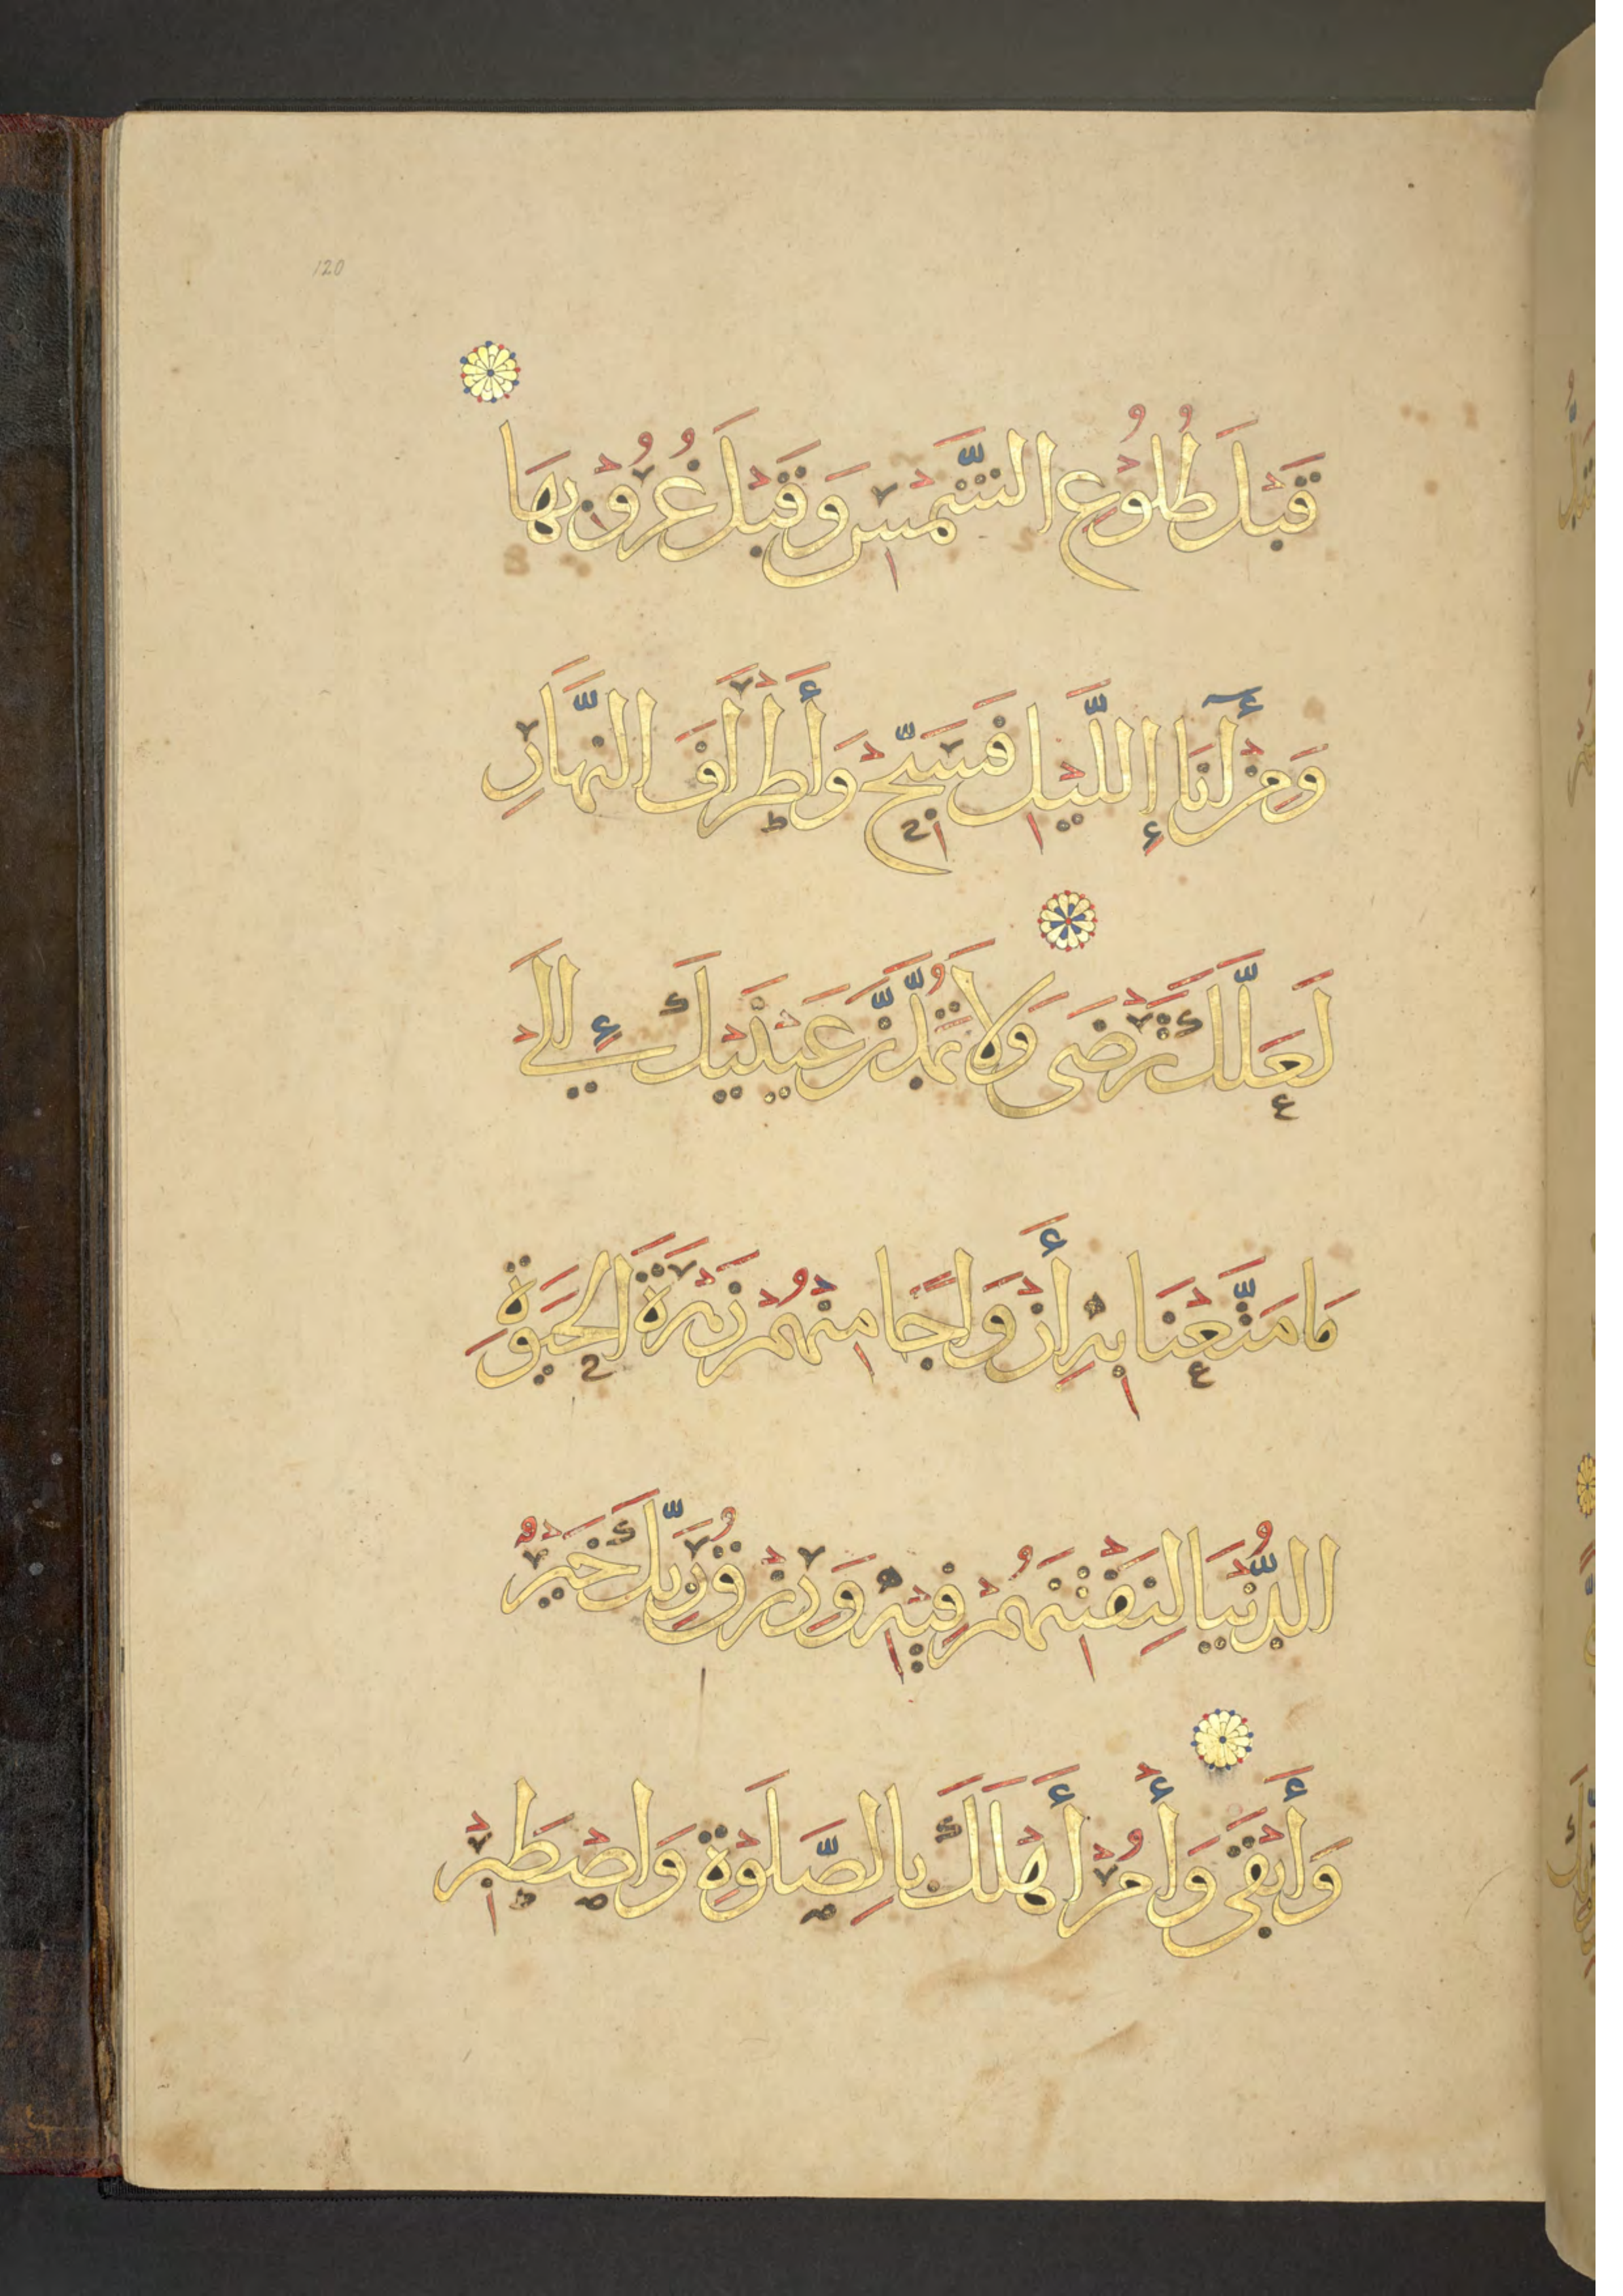 120
قَبْلَ طُلُوْعِ الشَّمْسِ وَقَبْلَ غُرُوْبِهَا
وَمِنْ أٓنَاإِ اللَّيْلِ فَسَبِّحْ وَأَطْرَافَ النَّهَارِ
لَعَلَّكَ تَرْضَى وَلَا تَمُدَّنَّ عَيْنَيْكَ إِلَى
مَا مَتَّعْنَا بِهِ أَزْوَاجًا مِنْهُمْ زَهْرَةَ الْحَيَوةِ
الدُّنْيَا لِنَفْتِنَهُمْ فِيْهِ وَرِزْقُ رَبِّكَ خَيْرٌ
وَأَبْقَى وَأْمُرْ أَهْلَكَ بِالصَّلَوةِ وَاصْطَبِرْ